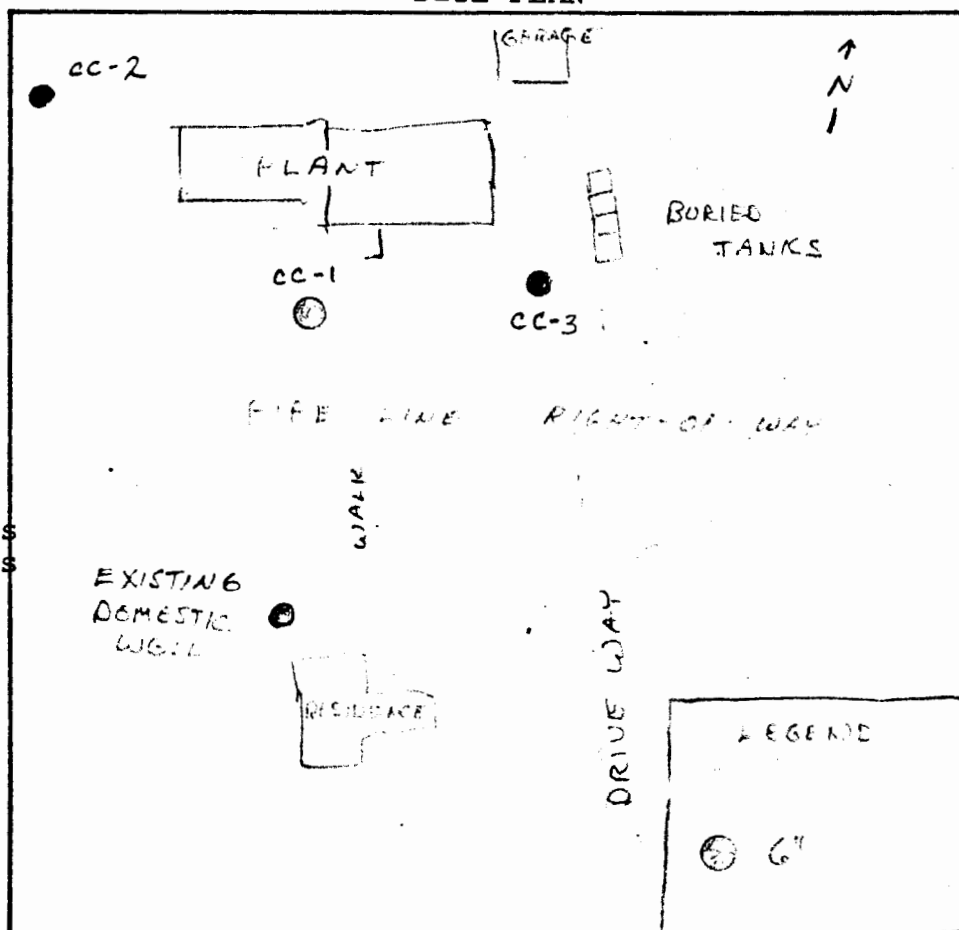 GARAGE
CC-2
N
PLANT
BURIED
TANKS
CC-1
CC-3
PIPE LINE RIGHT-OF-WAY
WALK
S
S
EXISTING
DOMESTIC
WELL
DRIVE WAY
RESIDENCE
LEGEND
6"